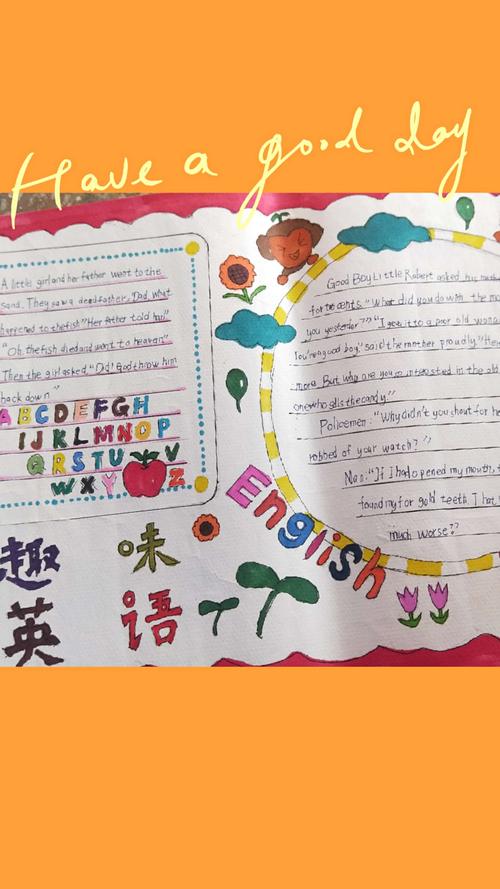 Have a good day
A little girl and her father went to the
sand. They saw a dead father. Dad, what
happened to the fish" Her father told hu"
"Oh. the fish died and went to heaven"
Then the girl asked "Did God throw him
back down"
ABCDEFGH
IJKLMNOP
QRSTUV
WXYZ
趣味
英语
English
Good Boy Little Robert asked his
for two cents. "What did you do with the
you yesterday?" "I gave it to a poor old
You're a good boy," said the mother proudly."
more. But why are you so interested in the old
one who sells the candy."
Policemen: "Why didn't you shout for
robbed of your watch?"
"If I had opened my mouth,
found my for gold teeth.
much worse??